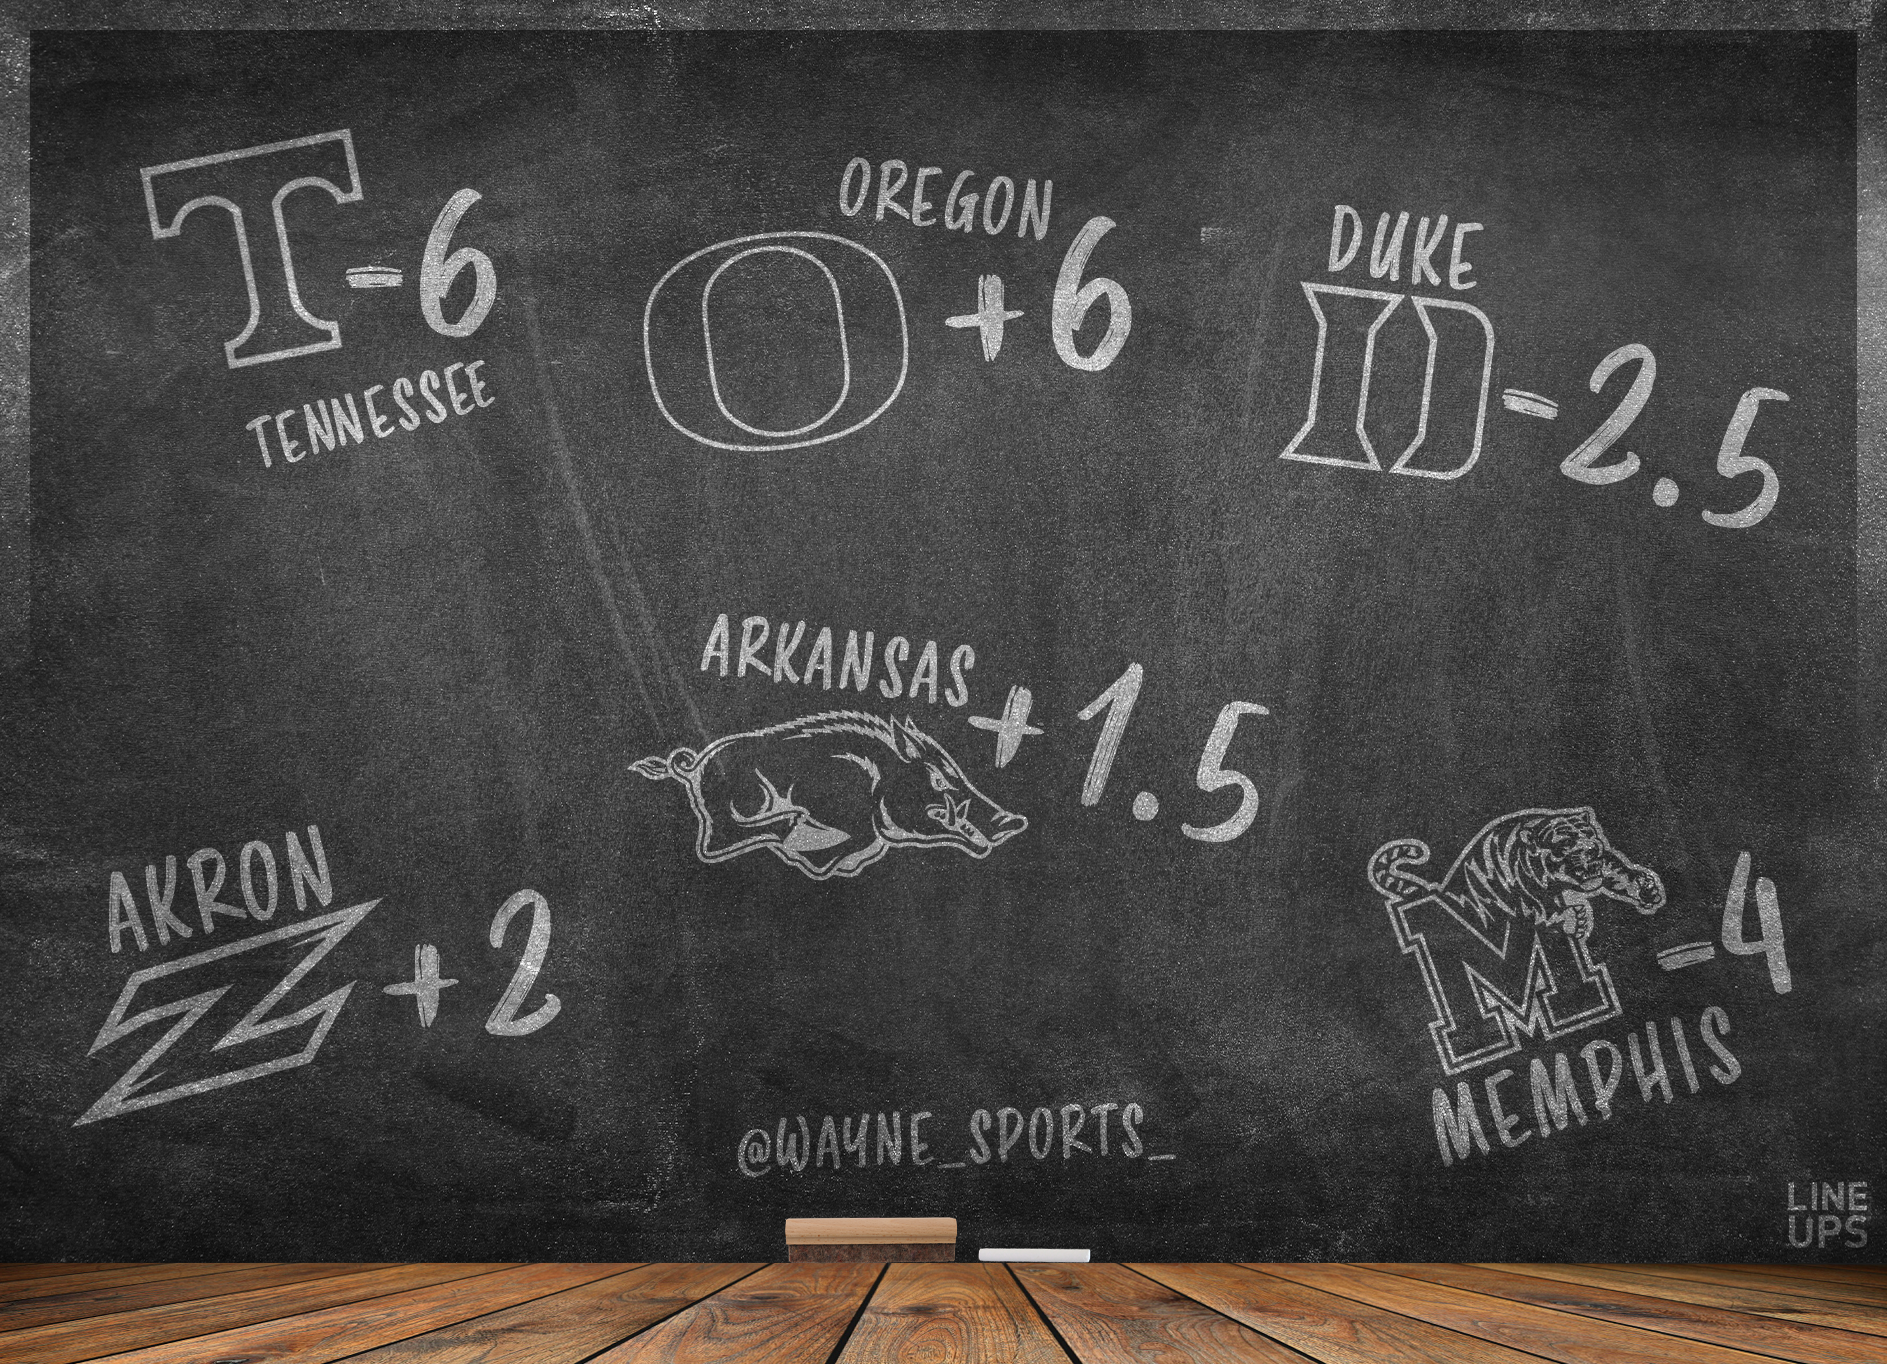 T -6
TENNESSEE
OREGON
O +6
DUKE
D -2.5
ARKANSAS
+1.5
AKRON
Z +2
M -4
MEMPHIS
@WAYNE_SPORTS_
LINE
UPS